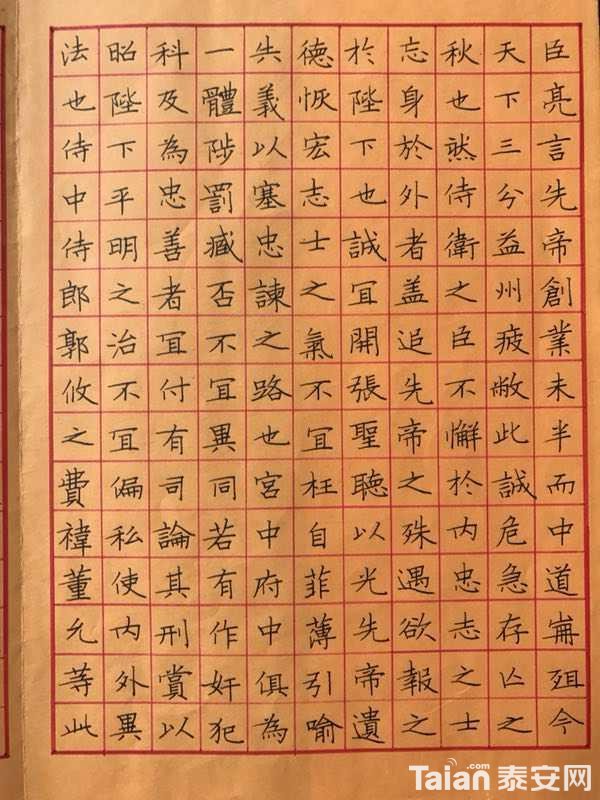 臣亮言先帝創業未半而中道崩殂今
天下三分益州疲敝此誠危急存亾之
秋也然侍衛之臣不懈於内忠志之士
忘身於外者盖追先帝之殊遇欲報之
於陛下也誠冝開張聖聽以光先帝遺
德恢宏志士之氣不冝枉自菲薄引喻
失義以塞忠諫之路也宮中府中俱為
一體陟罰臧否不冝異同若有作奸犯
科及為忠善者冝付有司論其刑賞以
昭陛下平明之治不冝偏私使内外異
法也侍中侍郎郭攸之費禕董允等此
Taian.com 泰安网